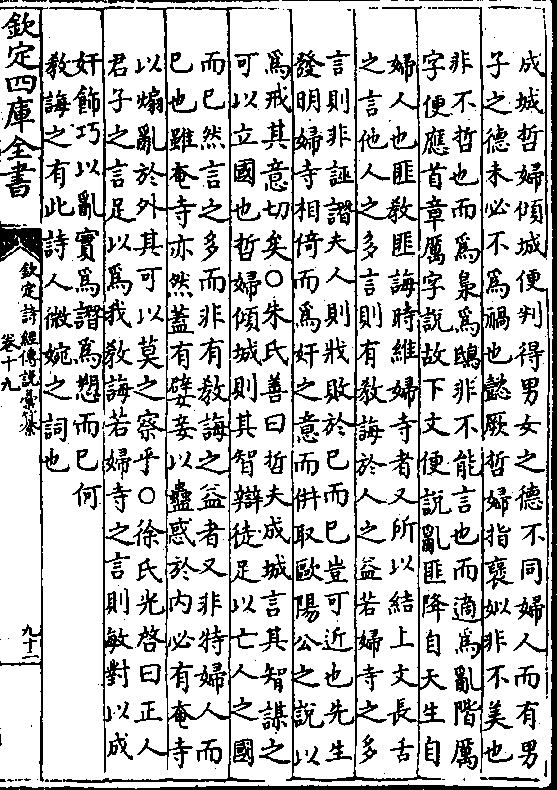 成城哲婦傾城便判得男女之德不同婦人而有男
子之德未必不爲禍也懿厥哲婦指褒姒非不美也
非不哲也而爲梟爲鴟非不能言也而適爲亂階厲
字便應首章厲字說故下文便說亂匪降自天生自
婦人也匪教匪誨時維婦寺者又所以結上文長舌
之言他人之多言則有教誨於人之益若婦寺之多
言則非誣譖夫人則戕敗於已而已豈可近也先生
發明婦寺相倚而爲奸之意而併取歐陽公之說以
爲戒其意切矣○朱氏善曰哲夫成城言其智謀之
可以立國也哲婦傾城則其智辯徒足以亡人之國
而已然言之多而非有教誨之益者又非特婦人而
已也雖奄寺亦然蓋有嬖妾以蠱惑於内必有奄寺
以煽亂於外其可以莫之察乎○徐氏光啓曰正人
君子之言足以爲我教誨若婦寺之言則敏對以成
奸飾巧以亂實爲譖爲愬而已何
教誨之有此詩人微婉之詞也
欽定四庫全書
欽定詩經傳說彙纂
卷十九
九十二